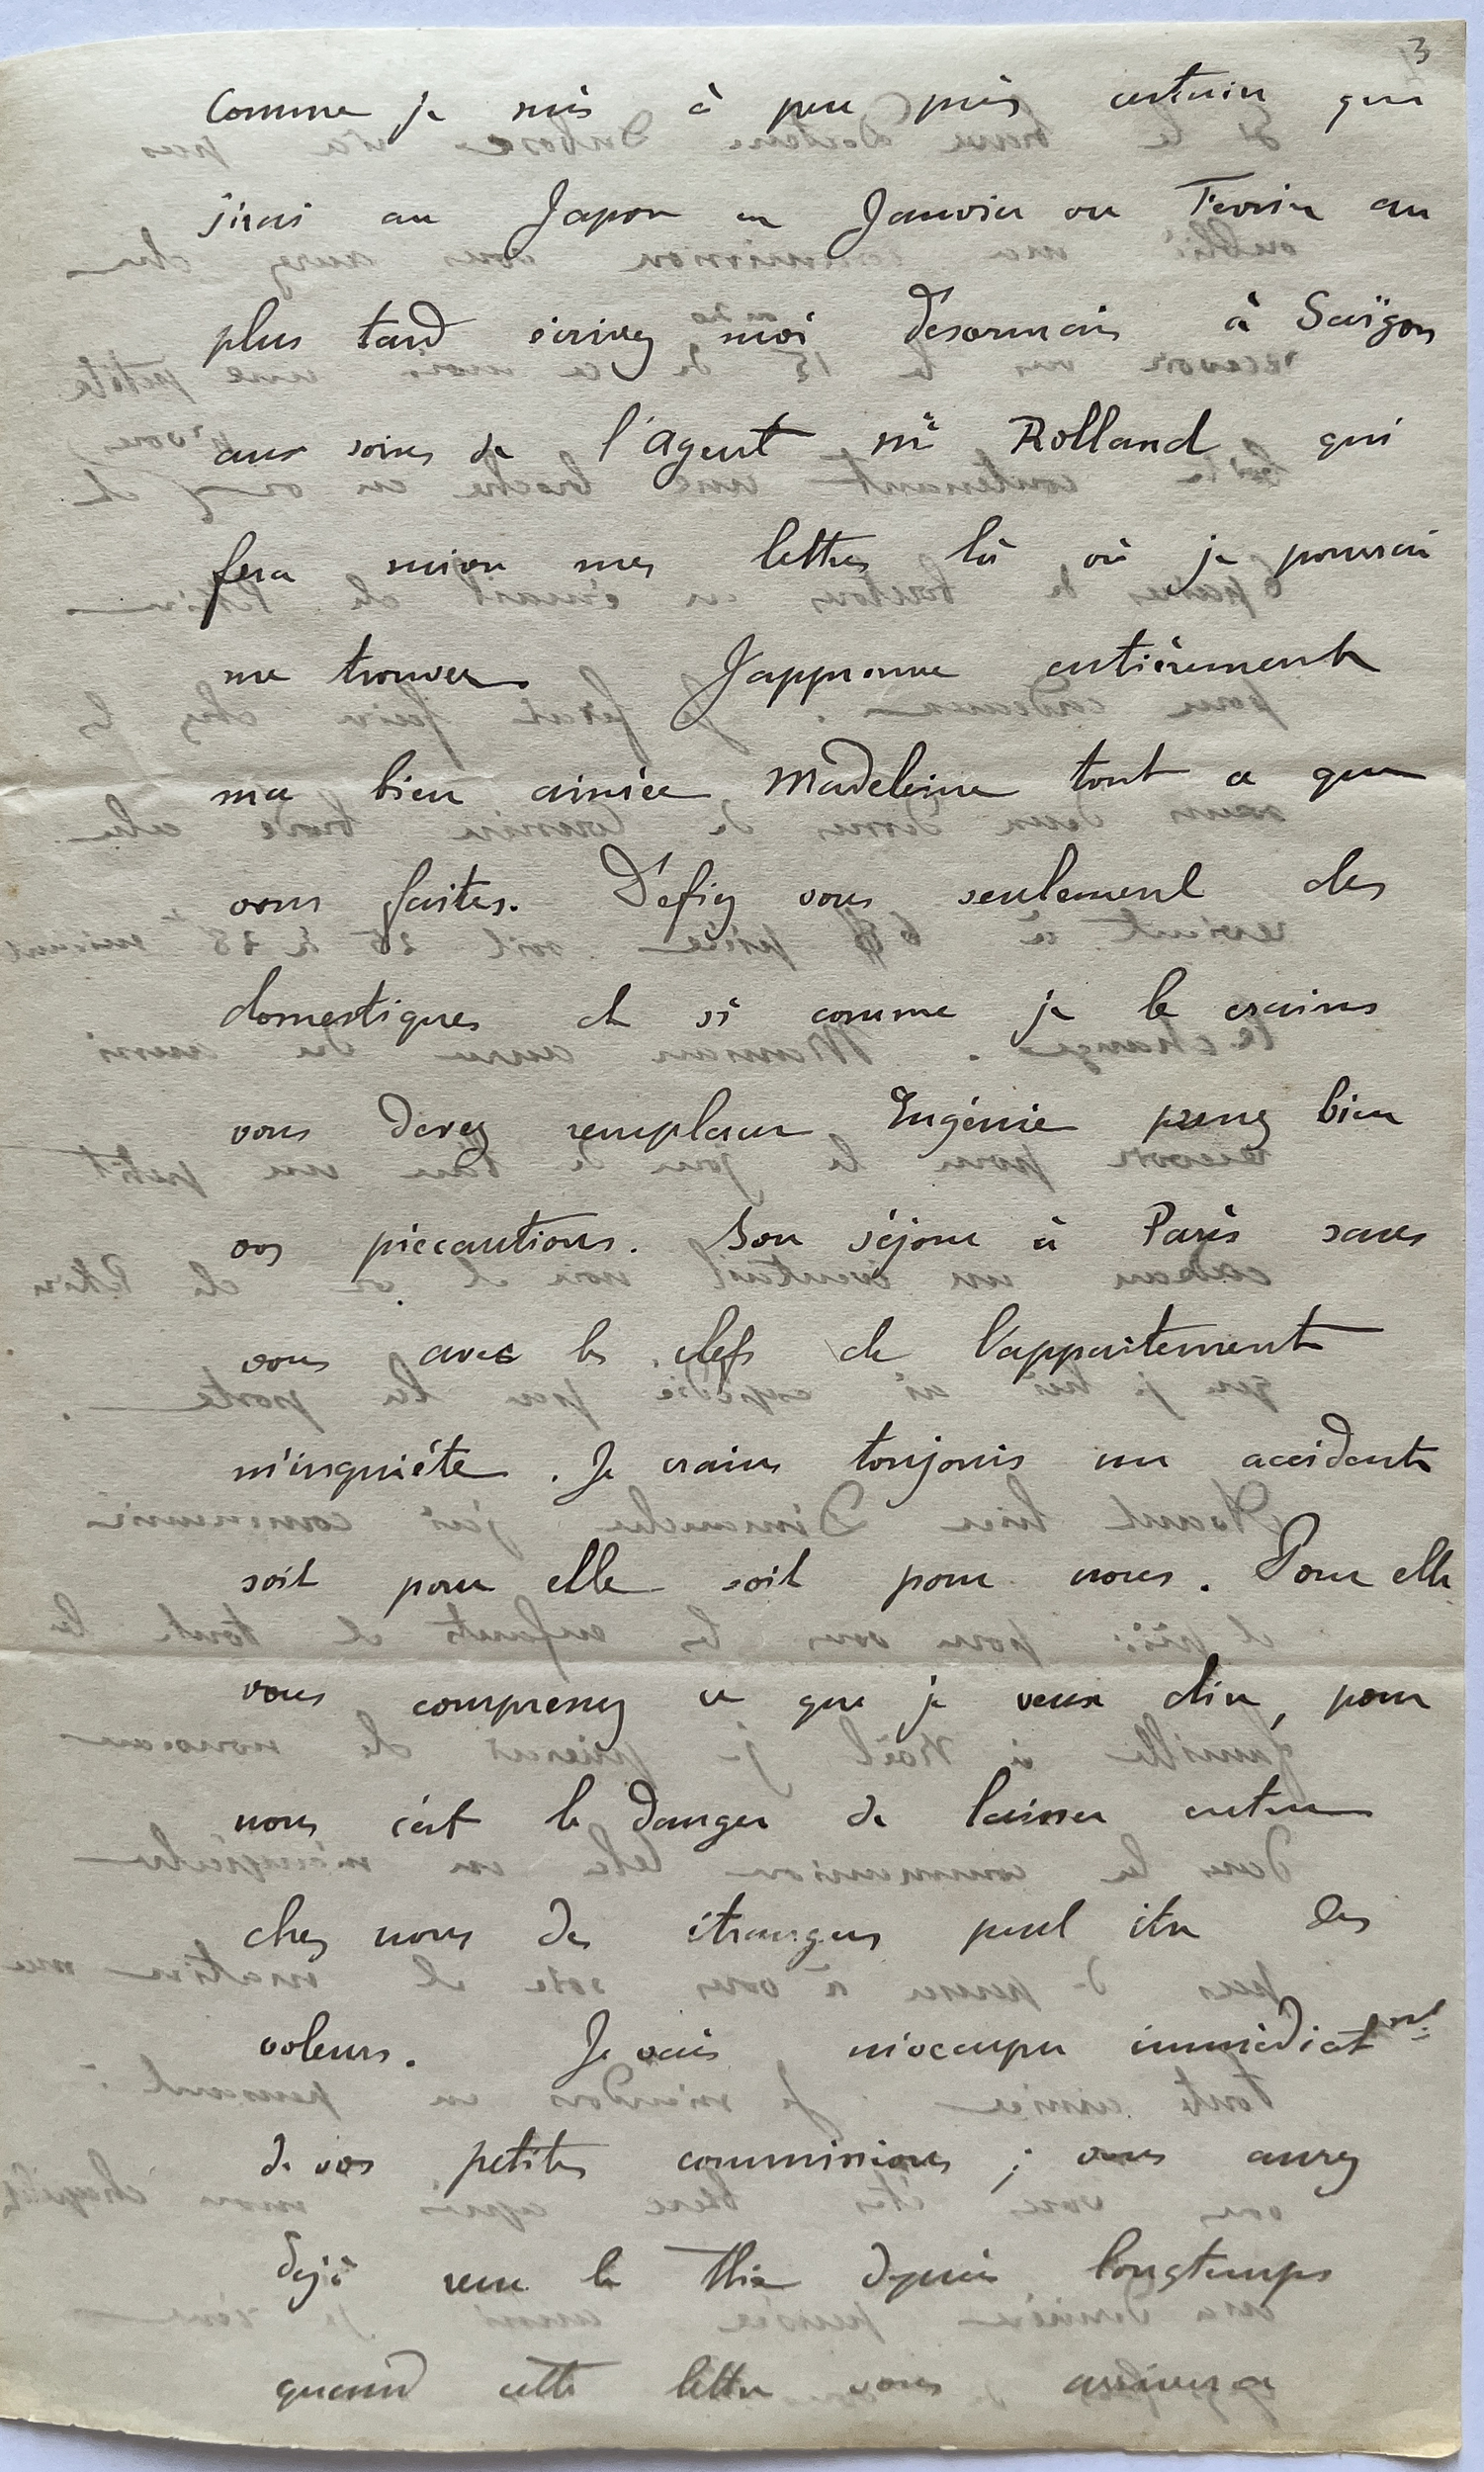 3
Comme je suis à peu près certain que
j'irai au Japon en Janvier ou Fevrier au
plus tard écrivez moi désormais à Saïgon
aux soins de l'agent Mr Rolland qui
fera suivre mes lettres là où je pourrai
me trouver. J'approuve entièrement
ma bien aimée Madeleine tout ce que
vous faites. Défiez vous seulement des
domestiques et si comme je le crains
vous devez remplacer Eugénie prenez bien
vos précautions. Son séjour à Paris sans
vous avec les clefs de l'appartement
m'inquiéte. Je crains toujours un accident
soit pour elle soit pour nous. Pour elle
vous comprenez ce que je veux dire, pour
nous c'est le danger de laisser entrer
chez nous des étrangers peut être des
voleurs. Je vais m'occuper immédiatmt
de vos petites commissions ; vous aurez
déjà reçu le thé depuis longtemps
quand cette lettre vous arrivera